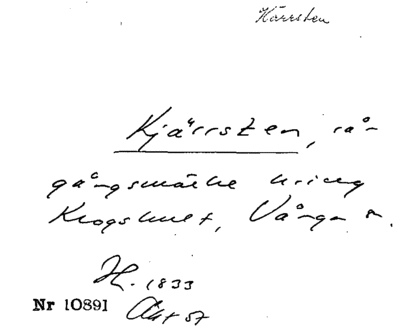 Kärrsten
Kjärrsten, rå-
gångsmärke kring
Krogshult, Vånga sn.
H. 1833
Nr 10891 Akt 57